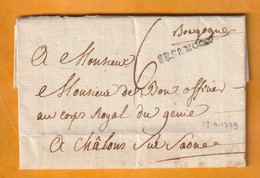 Bourgogne
BESANCON
A Monsieur
Monsieur de Bon officier
au corps Royal du genie
19.4.1779
A Châlons sur Saone